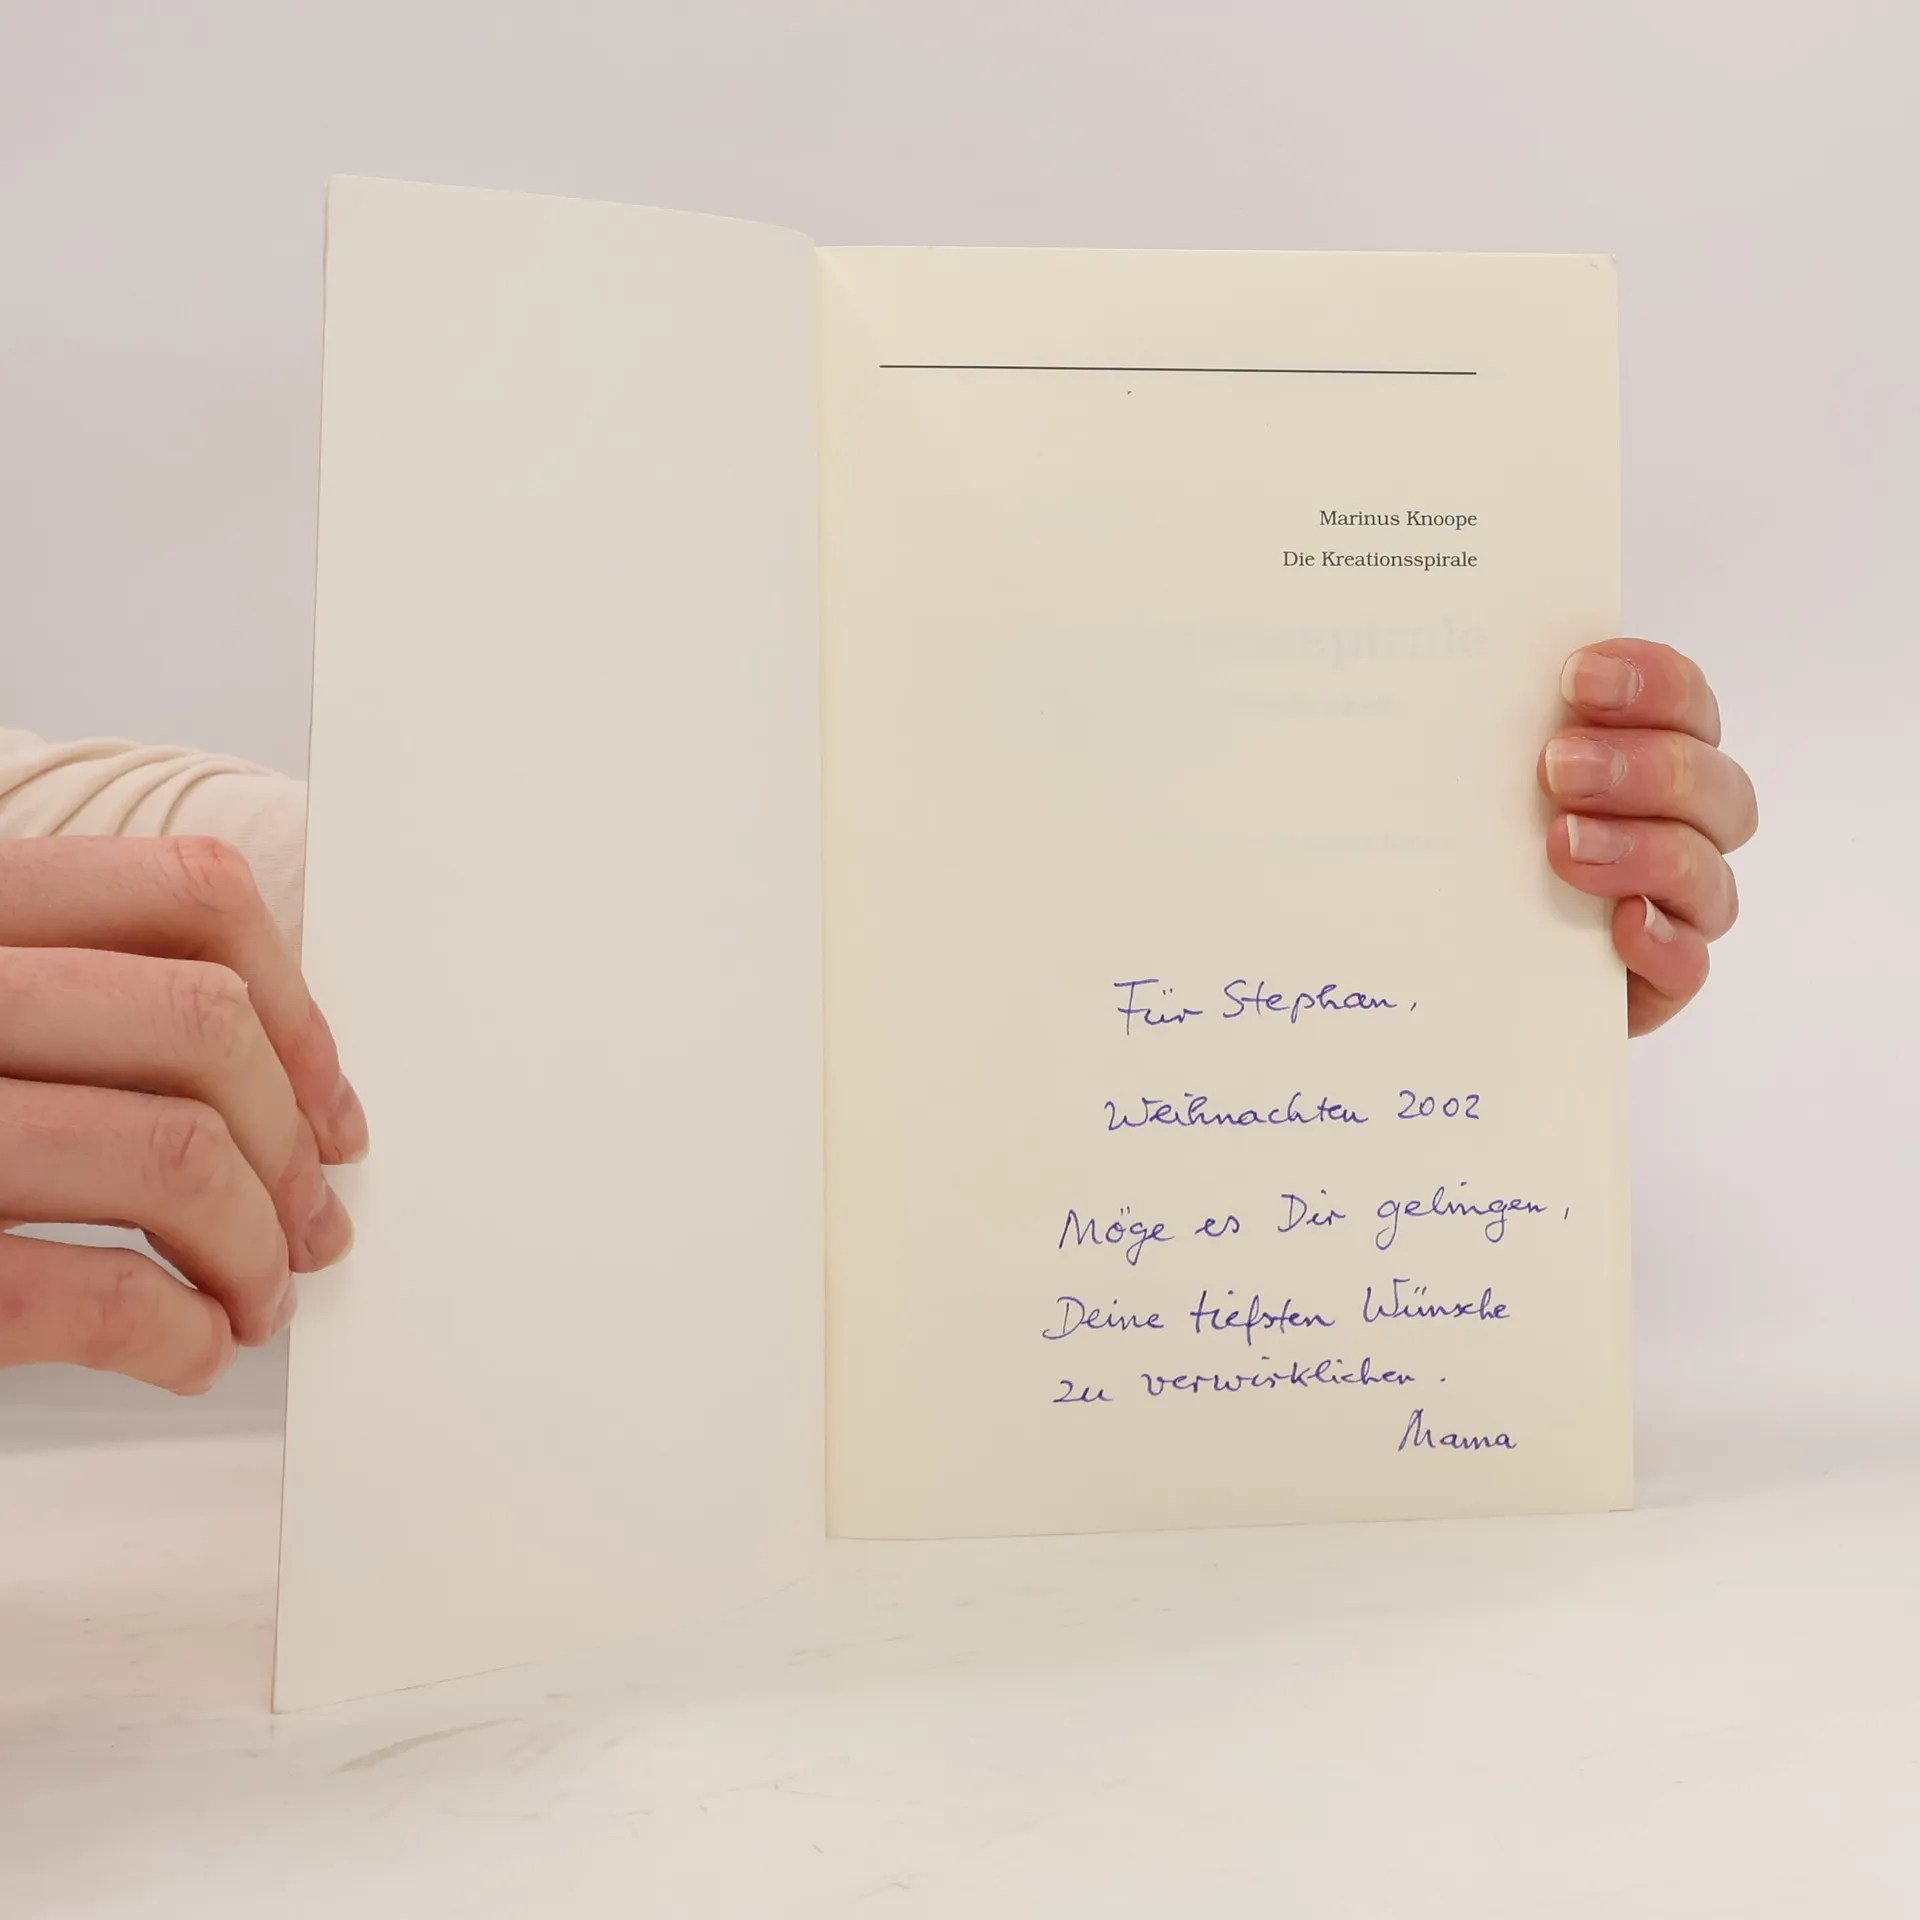 Marinus Knoope
Die Kreationsspirale
Für Stephan,
Weihnachten 2002
Möge es Dir gelingen,
Deine tiefsten Wünsche
zu verwirklichen.
Mama